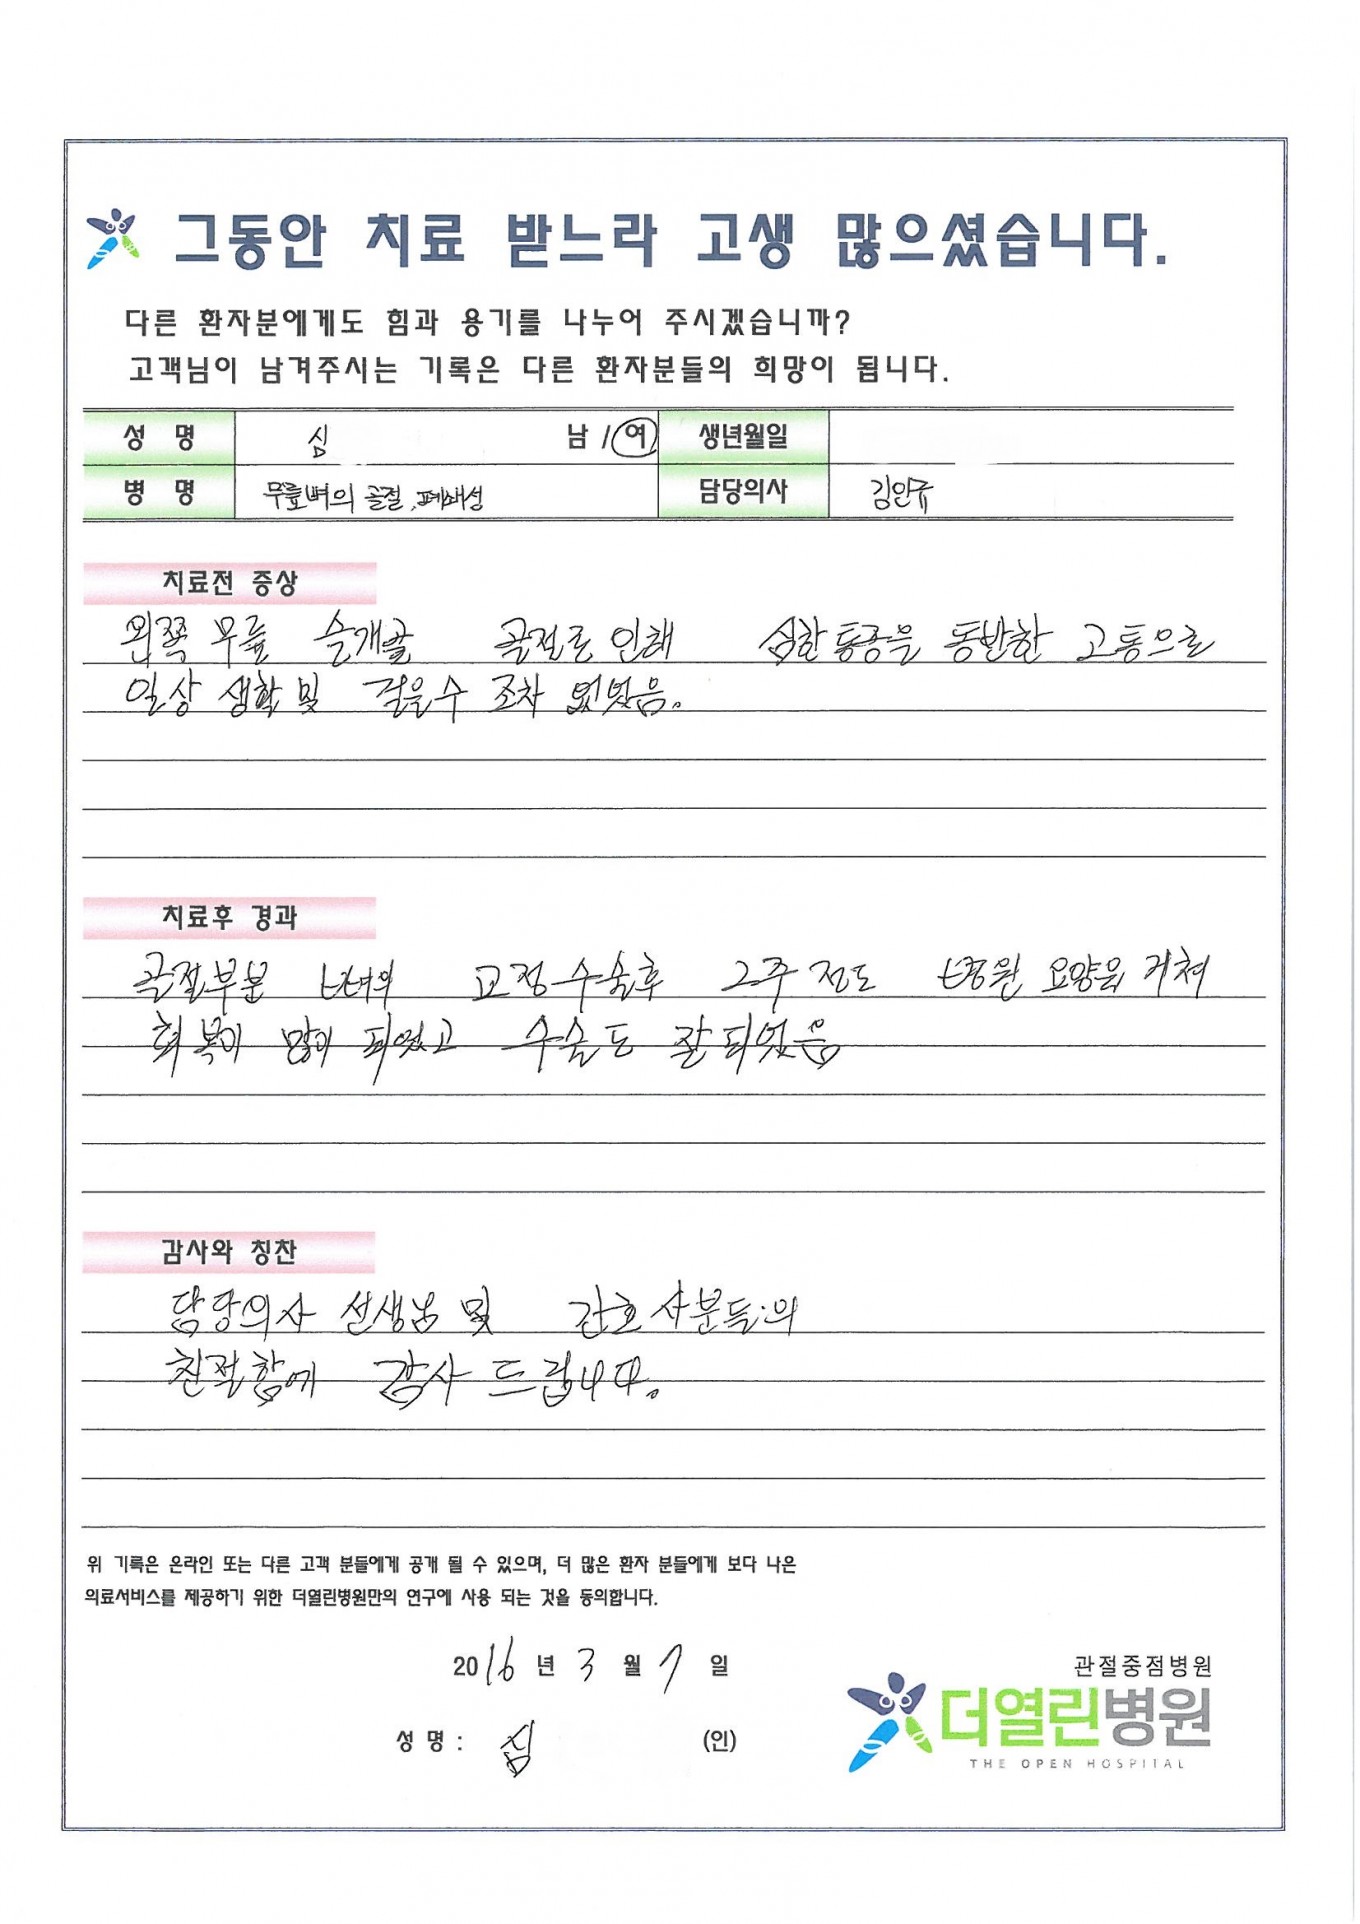 그동안 치료 받느라 고생 많으셨습니다.
다른 환자분에게도 힘과 용기를 나누어 주시겠습니까?
고객님이 남겨주시는 기록은 다른 환자분들의 희망이 됩니다.
성 명 심 남 / 여 생년월일
병 명 무릎뼈의 골절, 폐쇄성 담당의사 김안규
치료전 증상
왼쪽 무릎 슬개골 골절로 인해 심한 통증을 동반한 고통으로
일상 생활 및 걸을수 조차 없었음.
치료후 경과
골절부분 뼈의 교정수술후 2주 정도 병원 요양을 거쳐
회복이 많이 되었고 수술도 잘 되었음
감사와 칭찬
담당의사 선생님 및 간호사분들의
친절함에 감사 드립니다.
위 기록은 온라인 또는 다른 고객 분들에게 공개 될 수 있으며, 더 많은 환자 분들에게 보다 나은
의료서비스를 제공하기 위한 더열린병원만의 연구에 사용 되는 것을 동의합니다.
2016 년 3 월 7 일
성 명 : 심 (인)
관절중점병원
더열린병원
THE OPEN HOSPITAL